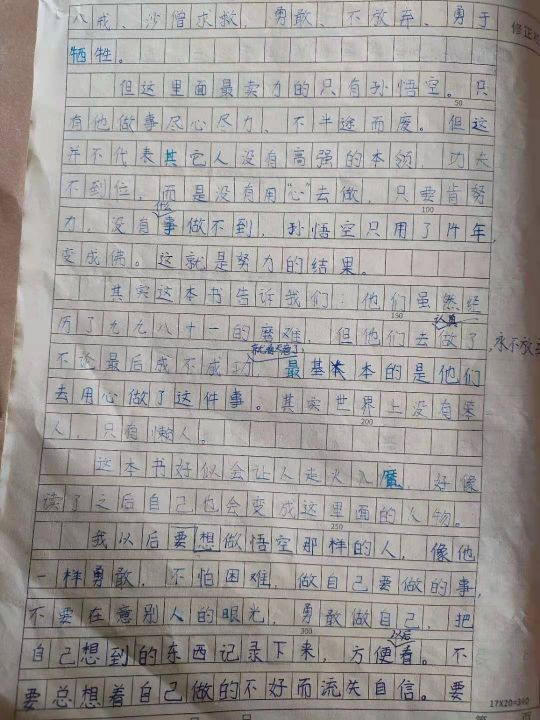 八戒、沙僧求救，勇敢、不放弃、勇于
修正
牺牲。
但这里面最卖力的只有孙悟空。只
50
有他做事尽心尽力，不半途而废。但这
并不代表其它人没有高强的本领，功夫
不到位，而是没有用“心”去做，只要肯努
100
做
力，没有事做不到，孙悟空只用了14年，
变成佛。这就是努力的结果。
其实这本书告诉我们：他们虽然经
150
认真
历了九九八十一的磨难，但他们去做了，永不放弃
不论最后成不成功 最基本的是他们
去用心做了这件事。其实世界上没有笨
200
人，只有懒人。
这本书好似会让人走火入魔，好像
读了之后自己也会变成这里面的人物。
250
我以后要想做悟空那样的人，像他
一样勇敢，不怕困难，做自己要做的事，
不要在意别人的眼光，勇敢做自己，把
300
以后
自己想到的东西记录下来，方便看。不
要总想着自己做的不好而流失自信。要
17X20=340